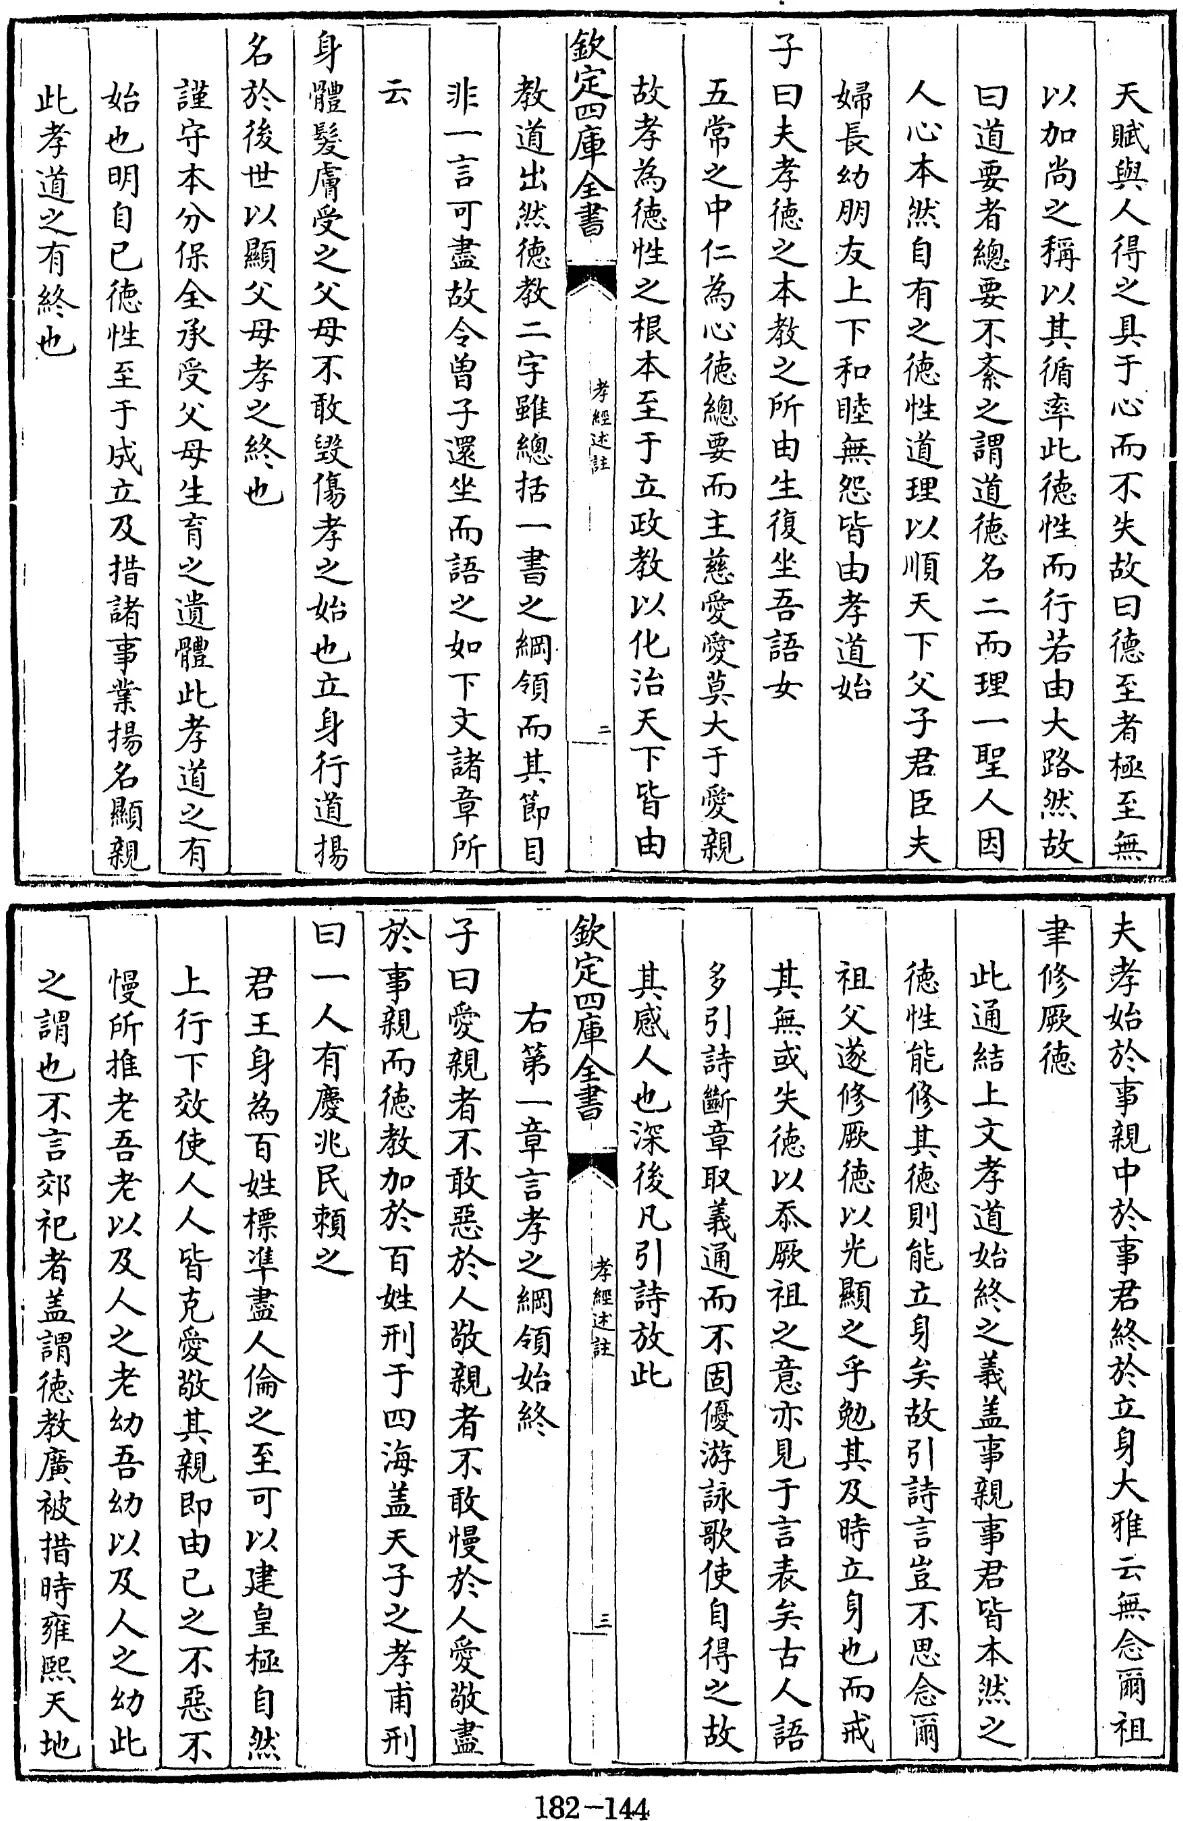 天賦與人得之具于心而不失故曰德至者極至無
以加尚之稱以其循率此德性而行若由大路然故
曰道要者總要不紊之謂道德名二而理一聖人因
人心本然自有之德性道理以順天下父子君臣夫
婦長幼朋友上下和睦無怨皆由孝道始
子曰夫孝德之本教之所由生復坐吾語女
五常之中仁為心德總要而主慈愛愛莫大于愛親
故孝為德性之根本至于立政教以化治天下皆由
欽定四庫全書
孝經述註
二
教道出然德教二字雖總括一書之綱領而其節目
非一言可盡故令曾子還坐而語之如下文諸章所
云
身體髮膚受之父母不敢毀傷孝之始也立身行道揚
名於後世以顯父母孝之終也
謹守本分保全承受父母生育之遺體此孝道之有
始也明自已德性至于成立及措諸事業揚名顯親
此孝道之有終也
夫孝始於事親中於事君終於立身大雅云無念爾祖
聿修厥德
此通結上文孝道始終之義盖事親事君皆本然之
德性能修其德則能立身矣故引詩言豈不思念爾
祖父遂修厥德以光顯之乎勉其及時立身也而戒
其無或失德以忝厥祖之意亦見于言表矣古人語
多引詩斷章取義通而不固優游詠歌使自得之故
其感人也深後凡引詩放此
欽定四庫全書
孝經述註
三
右第一章言孝之綱領始終
子曰愛親者不敢惡於人敬親者不敢慢於人愛敬盡
於事親而德教加於百姓刑于四海盖天子之孝甫刑
曰一人有慶兆民賴之
君王身為百姓標準盡人倫之至可以建皇極自然
上行下效使人人皆克愛敬其親即由已之不惡不
慢所推老吾老以及人之老幼吾幼以及人之幼此
之謂也不言郊祀者盖謂德教廣被措時雍熙天地
182-144